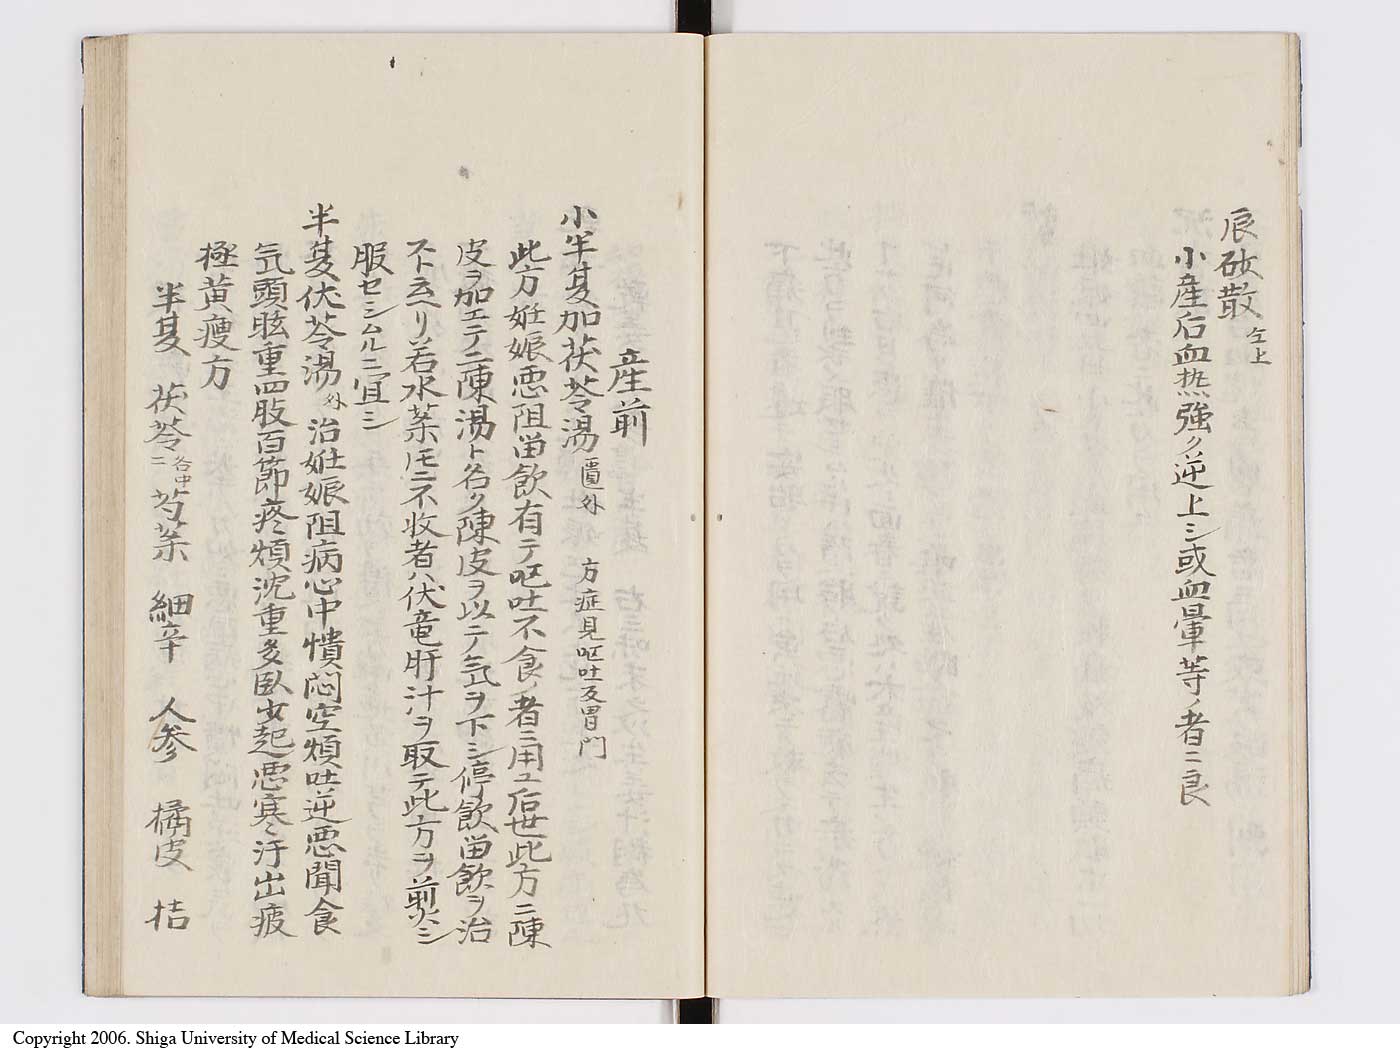 辰砂散 仝上
小産后血热強ク逆上シ或血暈等ノ者ニ良
産前
小半夏加茯苓湯 匱外 方症見呕吐及胃门
此方妊娠悪阻畄飲有テ呕吐不食ノ者ニ用ユ后世此方ニ陳
皮ヲ加エテ二陳湯ト名ク陳皮ヲ以テ気ヲ下シ停飲畄飲ヲ治
スト云ヘリ若水薬トモニ不收者ハ伏竜肝汁ヲ取テ此方ヲ煎シ
服セシムルニ宜シ
半夏伏苓湯 外 治妊娠阻病心中憒悶空煩吐逆悪聞食
気頭眩重四肢百節疼煩沈重多臥少起悪寒汗出疲
極黄瘦方
半夏 茯苓 各中二 芍薬 細辛 人参 橘皮 桔
Copyright 2006. Shiga University of Medical Science Library